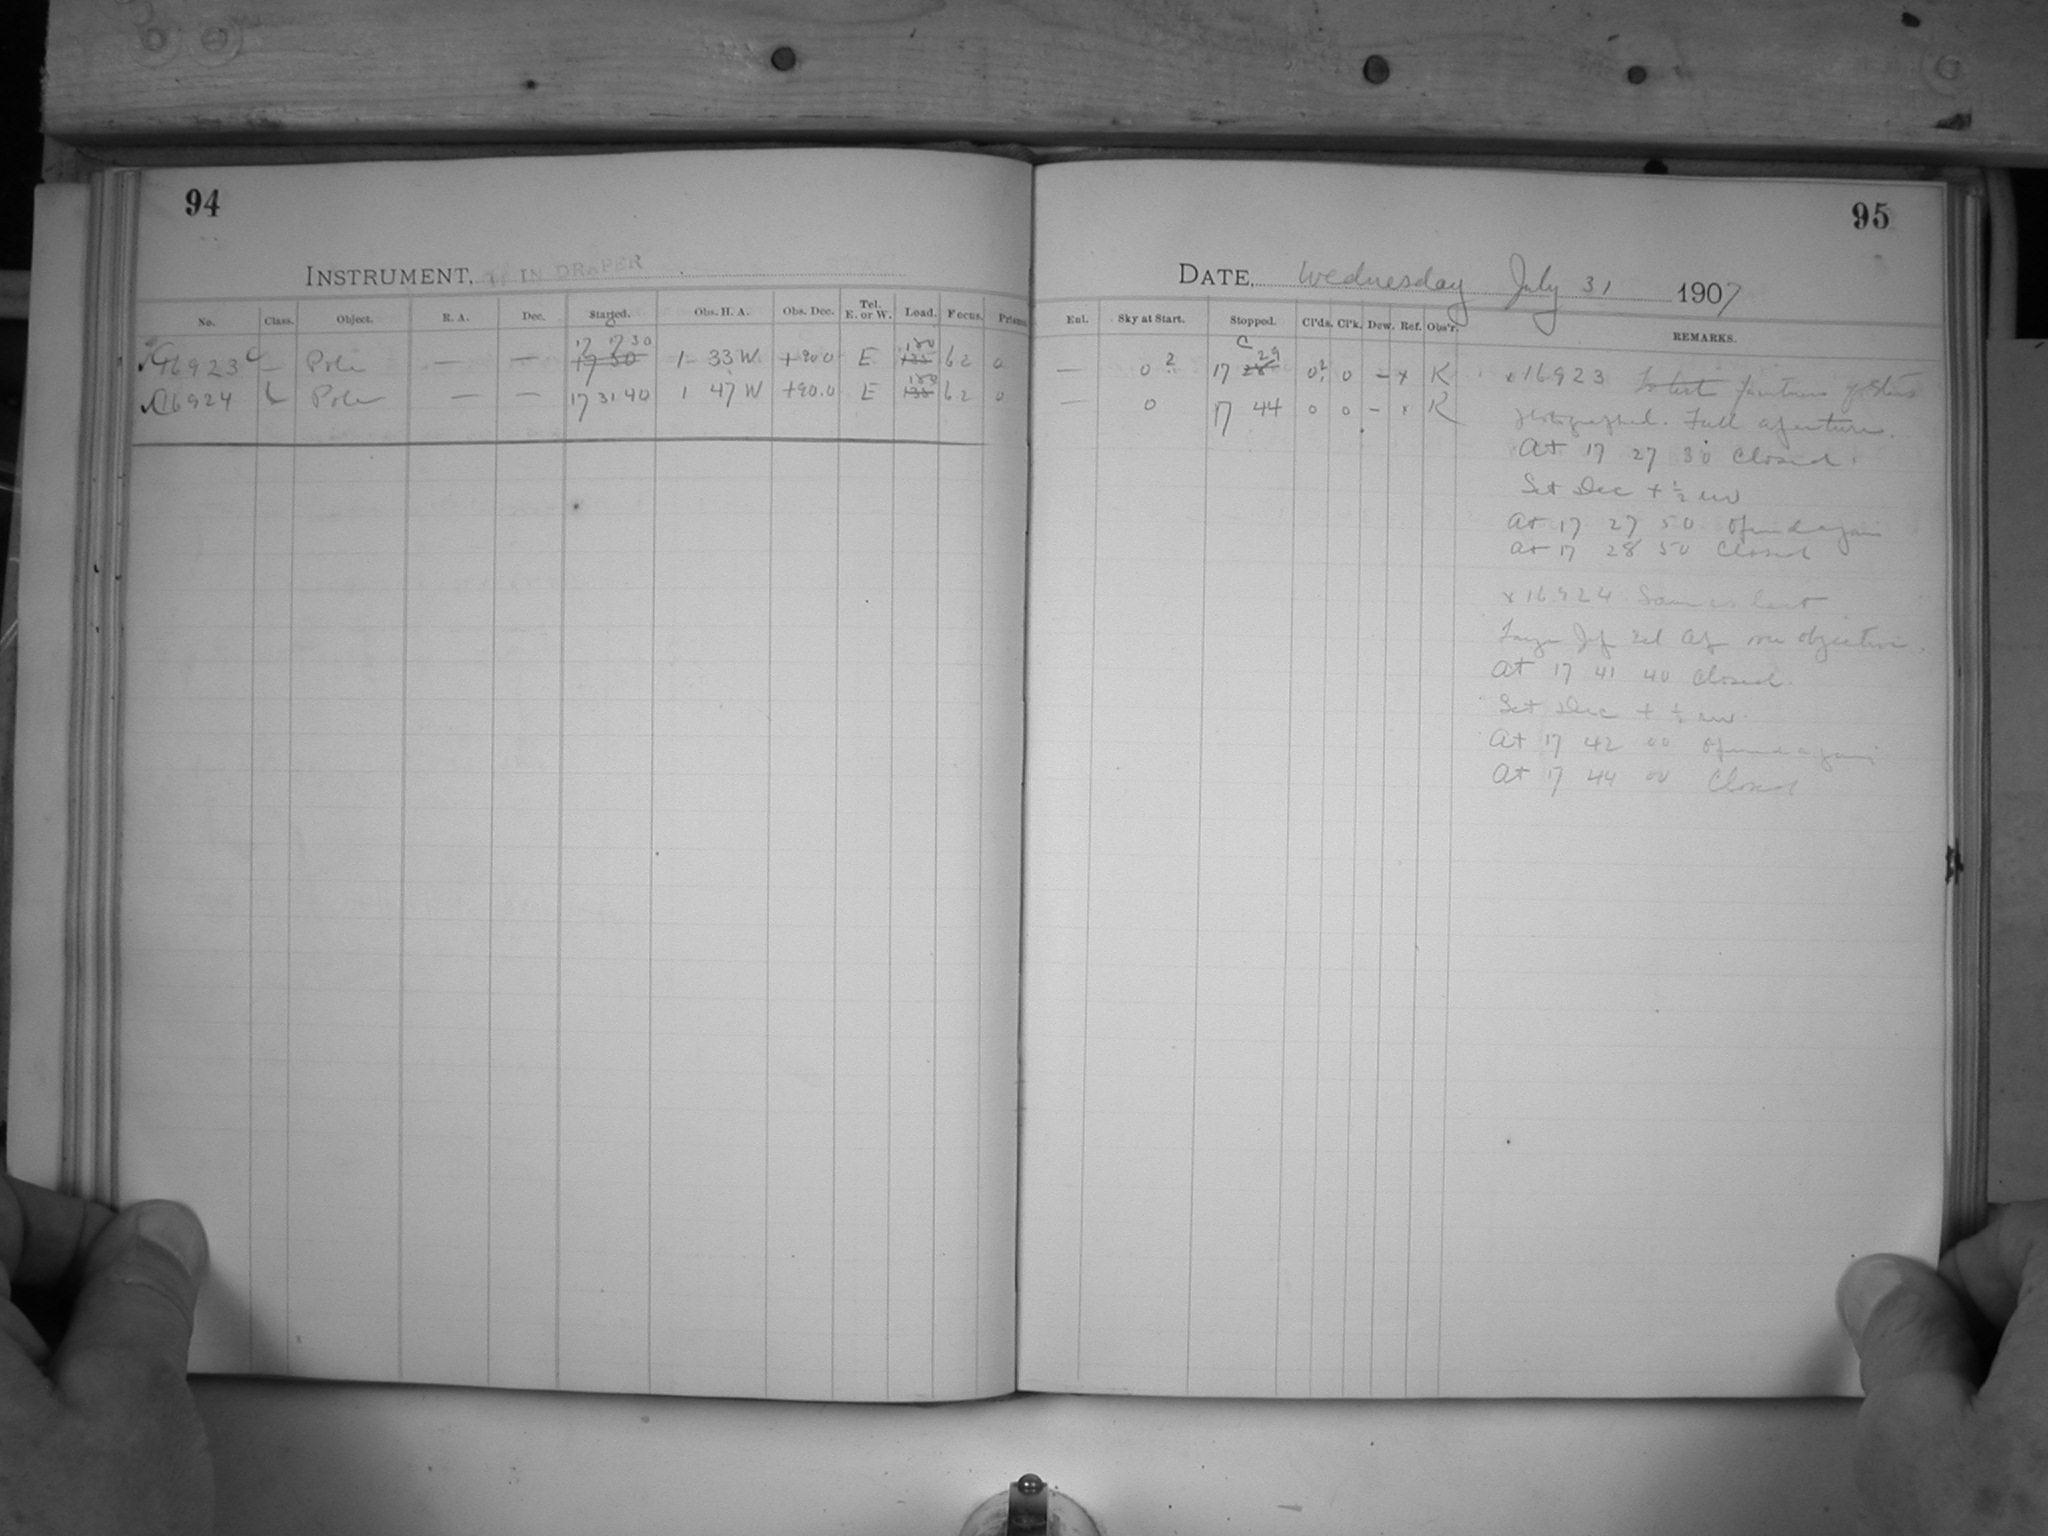 94
INSTRUMENT, IN DRAPER
No. Class. Object. R. A. Dec. Started. Obs. H. A. Obs. Dec. Tel. E. or W. Load. Focus. Prisms
17 17 30
16923 C Pole — — 17 30 1 33 W +90.0 E 180 6.2 0
16924 L Pole — — 17 31 40 1 47 W +90.0 E 180 6.2 0
95
DATE, Wednesday July 31 1907
Enl. Sky at Start. Stopped. Cl'ds. Cl'k. Dew. Ref. Obs'r. REMARKS.
— 0 2 17 29 0 2 0 – x K x 16923 To test faintness of stars
— 0 17 44 0 0 – x K photographed. Full aperture.
At 17 27 30 Closed.
Set Dec + ½ rev
At 17 27 50 opened again
At 17 28 50 Closed
x 16924 Same as last
objective.
At 17 41 40 Closed.
Set Dec + ½ rev.
At 17 42 00 opened again
At 17 44 00 Closed